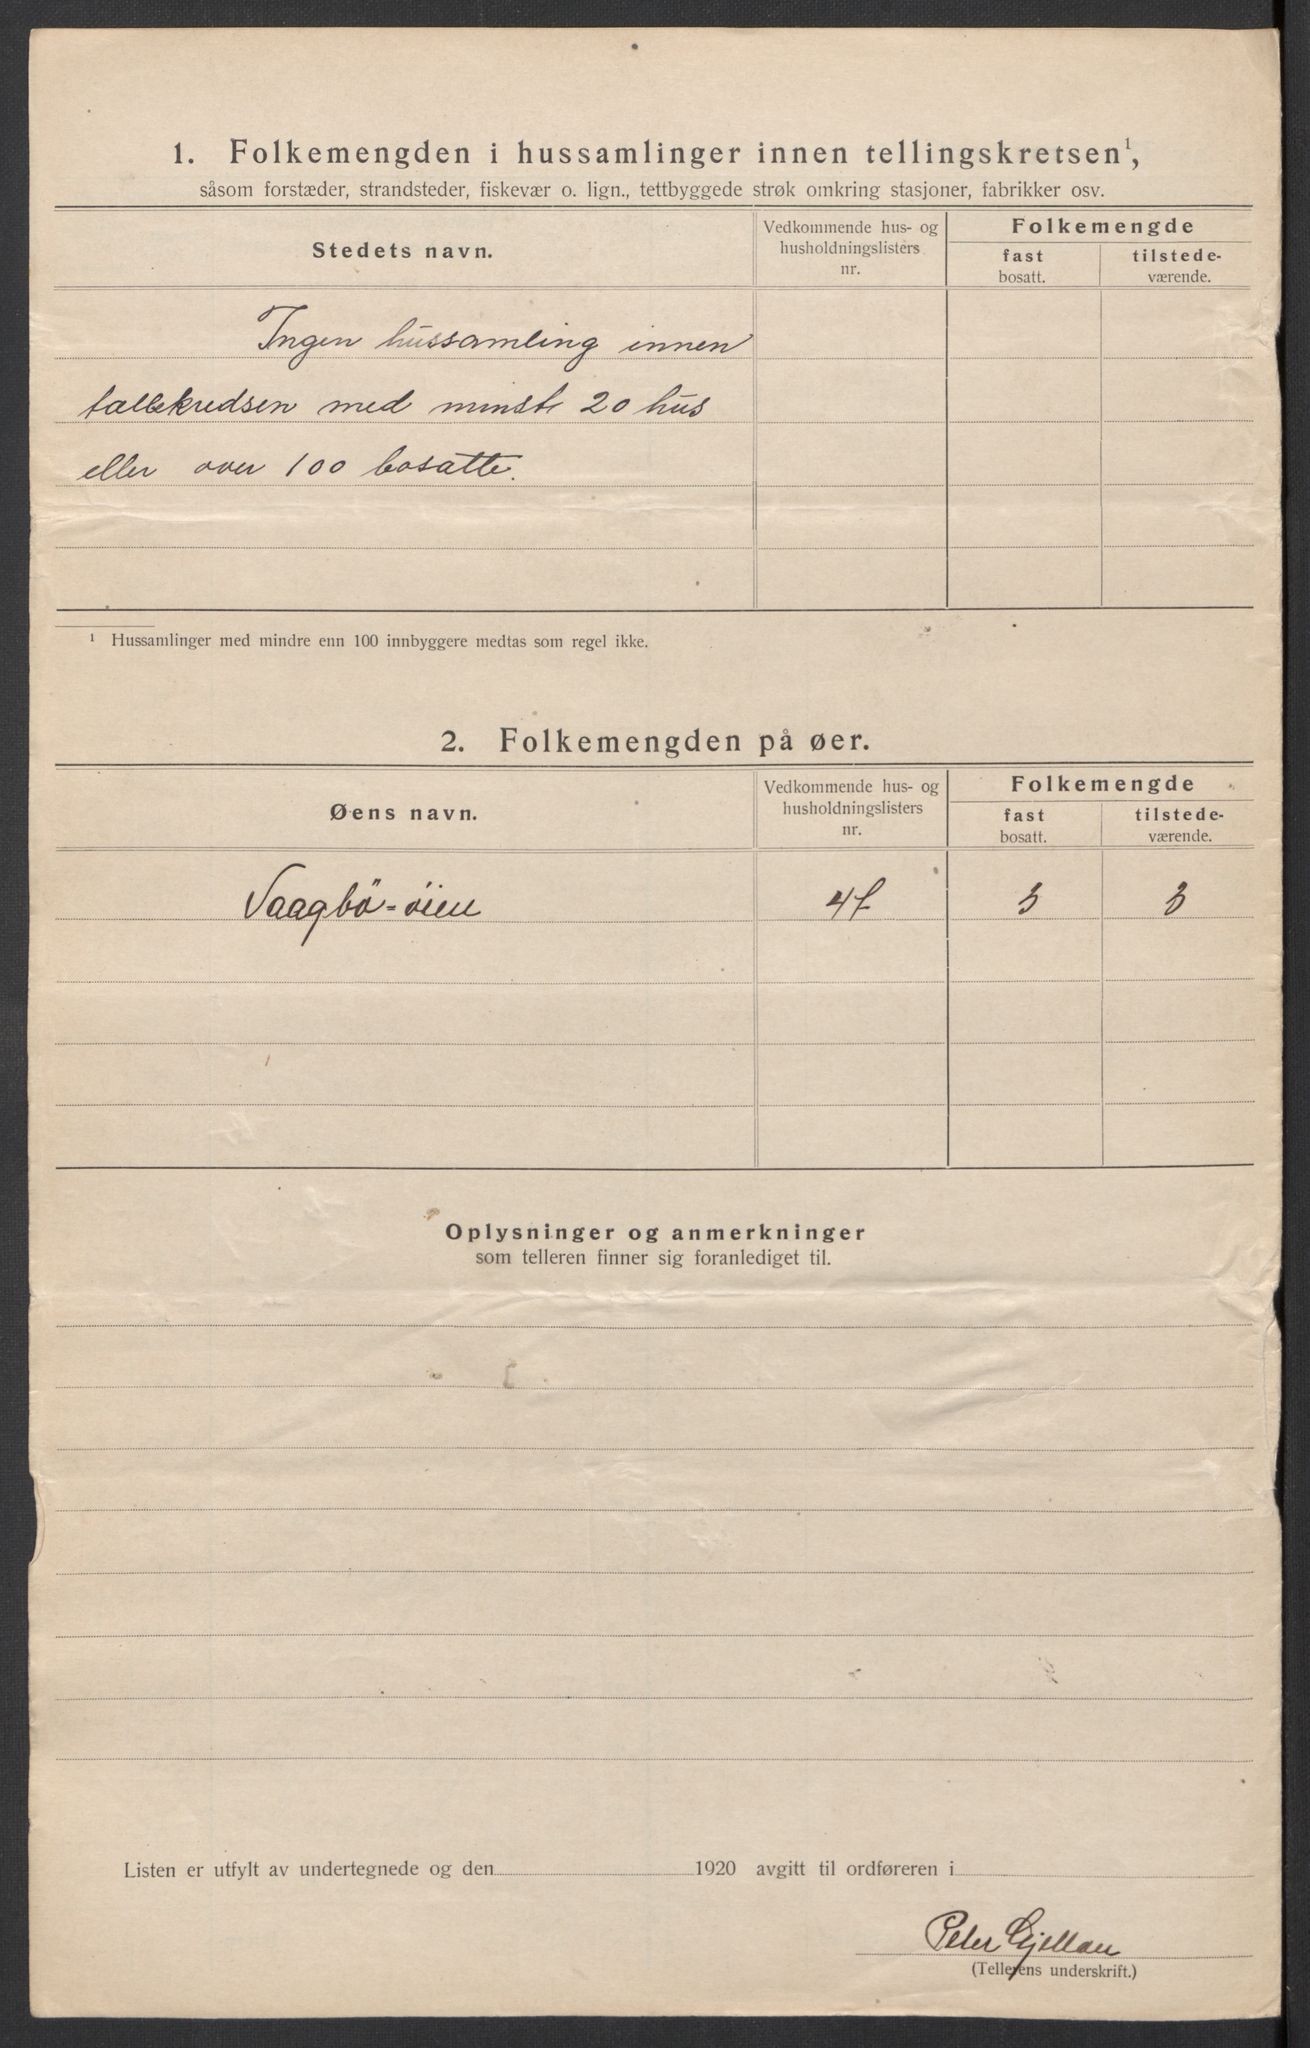 1. Folkemengden i hussamlinger innen tellingskretsen¹,
såsom forstæder, strandsteder, fiskevær o. lign., tettbyggede strøk omkring stasjoner, fabrikker osv.
Stedets navn.
Vedkommende hus- og
husholdningslisters
nr.
Folkemengde
fast
bosatt.
tilstede-
værende.
Ingen hussamling innen
tællekredsen med minst 20 hus
eller over 100 bosatte.
¹ Hussamlinger med mindre enn 100 innbyggere medtas som regel ikke.
2. Folkemengden på øer.
Øens navn.
Vedkommende hus- og
husholdningslisters
nr.
Folkemengde
fast
bosatt.
tilstede-
værende.
Vaagbö-öien 3 3
Oplysninger og anmerkninger
som telleren finner sig foranlediget til.
Listen er utfylt av undertegnede og den 1920 avgitt til ordføreren i
Peter
(Tellerens underskrift.)